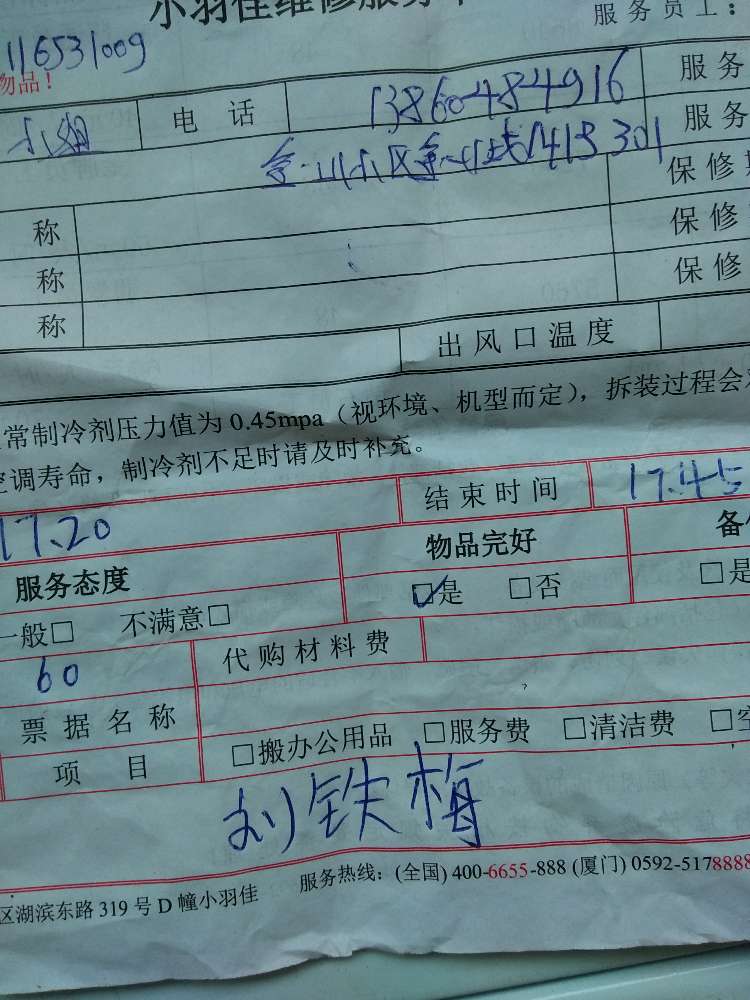 小羽佳维修服务单
服务员工：
116531009
物品！
小姐 电话 13860484916 服务
金山小区金山路141号301 服务
保修
称 保修
称 保修
称
出风口温度
常制冷剂压力值为 0.45mpa（视环境、机型而定），拆装过程会
空调寿命，制冷剂不足时请及时补充。
17.20 结束时间 17.45
服务态度 物品完好 备
一般□ 不满意□ ☑是 □否 □是
60 代购材料费
票据名称
项目 □搬办公用品 □服务费 □清洁费 □空
刘铁梅
区湖滨东路 319 号 D 幢小羽佳 服务热线：(全国) 400-6655-888 (厦门) 0592-5178888